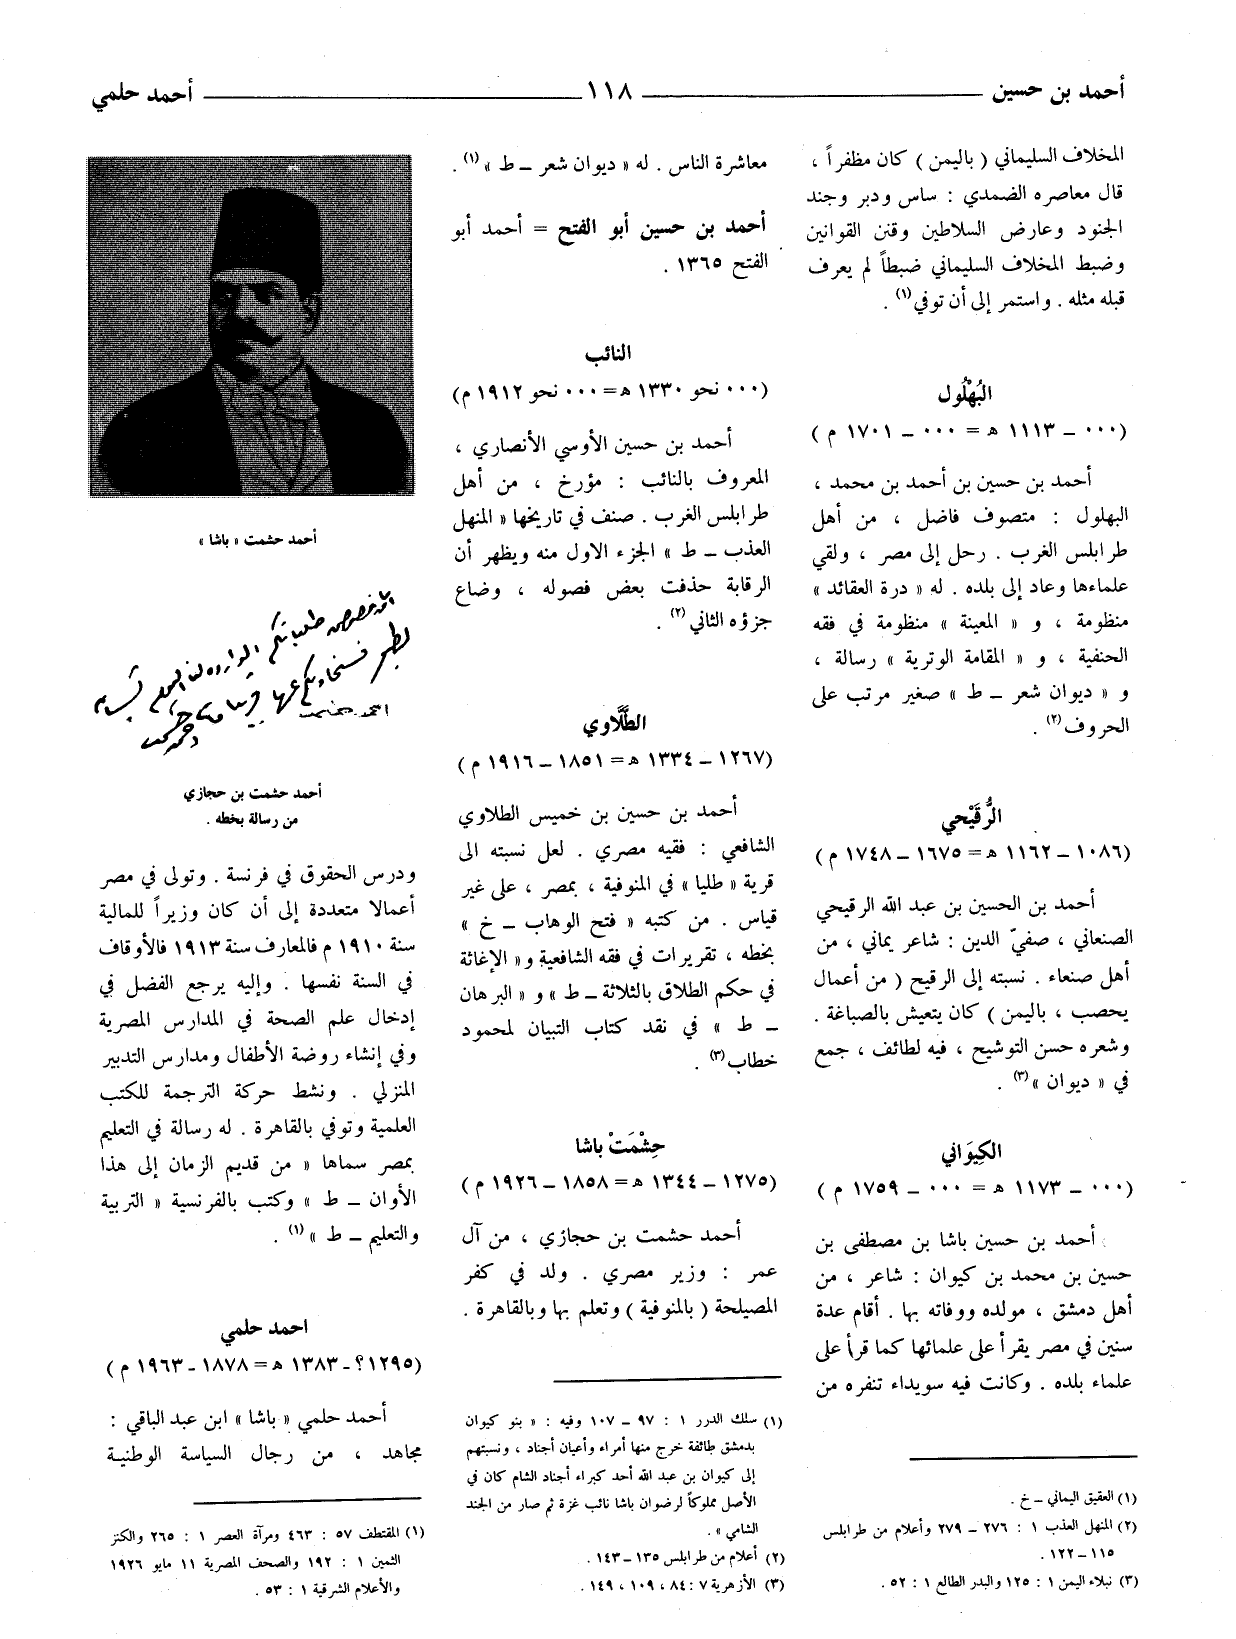 أحمد بن حسين ــــــ ١١٨ ــــــ أحمد حلمي
المخلاف السليماني ( باليمن ) كان مظفراً ،
قال معاصره الضمدي : ساس ودبر وجند
الجنود وعارض السلاطين وقنن القوانين
وضبط المخلاف السليماني ضبطاً لم يعرف
قبله مثله . واستمر إلى أن توفي(١) .
البُهْلُول
(٠٠٠ ــ ١١١٣ ه = ٠٠٠ ــ ١٧٠١ م )
أحمد بن حسين بن أحمد بن محمد ،
البهلول : متصوف فاضل ، من أهل
طرابلس الغرب . رحل إلى مصر ، ولقي
علماءها وعاد إلى بلده . له « درة العقائد »
منظومة ، و « المعينة » منظومة في فقه
الحنفية ، و « المقامة الوترية » رسالة ،
و « ديوان شعر ــ ط » صغير مرتب على
الحروف(٢) .
الرُّقَيْحي
(١٠٨٦ ــ ١١٦٢ ه = ١٦٧٥ ــ ١٧٤٨ م )
أحمد بن الحسين بن عبد الله الرقيحي
الصنعاني ، صفيّ الدين : شاعر يماني ، من
أهل صنعاء . نسبته إلى الرقيح ( من أعمال
يحصب ، باليمن ) كان يتعيش بالصباغة .
وشعره حسن التوشيح ، فيه لطائف ، جمع
في « ديوان »(٣) .
الكِيوَاني
(٠٠٠ ــ ١١٧٣ ه = ٠٠٠ ــ ١٧٥٩ م )
أحمد بن حسين باشا بن مصطفى بن
حسين بن محمد بن كيوان : شاعر ، من
أهل دمشق ، مولده ووفاته بها . أقام عدة
سنين في مصر يقرأ على علمائها كما قرأ على
علماء بلده . وكانت فيه سويداء تنفره من
(١) العقيق اليماني ــ خ .
(٢) المنهل العذب ١ : ٢٧٦ ــ ٢٧٩ وأعلام من طرابلس
١١٥ ــ ١٢٢ .
(٣) نبلاء اليمن ١ : ١٢٥ والبدر الطالع ١ : ٥٢ .
معاشرة الناس . له « ديوان شعر ــ ط »(١) .
أحمد بن حسين أبو الفتح = أحمد أبو
الفتح ١٣٦٥ .
النائب
(٠٠٠ نحو ١٣٣٠ ه = ٠٠٠ نحو ١٩١٢ م)
أحمد بن حسين الأوسي الأنصاري ،
المعروف بالنائب : مؤرخ ، من أهل
طرابلس الغرب . صنف في تاريخها « المنهل
العذب ــ ط » الجزء الاول منه ويظهر أن
الرقابة حذفت بعض فصوله ، وضاع
جزؤه الثاني(٢) .
الطَّلَّاوي
(١٢٦٧ ــ ١٣٣٤ ه = ١٨٥١ ــ ١٩١٦ م )
أحمد بن حسين بن خميس الطلاوي
الشافعي : فقيه مصري . لعل نسبته الى
قرية « طليا » في المنوفية ، بمصر ، على غير
قياس . من كتبه « فتح الوهاب ــ خ »
بخطه ، تقريرات في فقه الشافعية و « الإغاثة
في حكم الطلاق بالثلاثة ــ ط » و « البرهان
ــ ط » في نقد كتاب التبيان لمحمود
خطاب(٣) .
حِشْمَتْ باشا
(١٢٧٥ ــ ١٣٤٤ ه = ١٨٥٨ ــ ١٩٢٦ م )
أحمد حشمت بن حجازي ، من آل
عمر : وزير مصري . ولد في كفر
المصيلحة ( بالمنوفية ) وتعلم بها وبالقاهرة .
(١) سلك الدرر ١ : ٩٧ ــ ١٠٧ وفيه : « بنو كيوان
بدمشق طائفة خرج منها أمراء وأعيان أجناد ، ونسبتهم
إلى كيوان بن عبد الله أحد كبراء أجناد الشام كان في
الأصل مملوكاً لرضوان باشا نائب غزة ثم صار من الجند
الشامي » .
(٢) أعلام من طرابلس ١٣٥ ــ ١٤٣ .
(٣) الأزهرية ٧ : ٨٤ ، ١٠٩ ، ١٤٩ .
أحمد حشمت « باشا »
احمد حشمت
أحمد حشمت بن حجازي
من رسالة بخطه .
ودرس الحقوق في فرنسة . وتولى في مصر
أعمالا متعددة إلى أن كان وزيراً للمالية
سنة ١٩١٠ م فالمعارف سنة ١٩١٣ فالأوقاف
في السنة نفسها . وإليه يرجع الفضل في
إدخال علم الصحة في المدارس المصرية
وفي إنشاء روضة الأطفال ومدارس التدبير
المنزلي . ونشط حركة الترجمة للكتب
العلمية وتوفي بالقاهرة . له رسالة في التعليم
بمصر سماها « من قديم الزمان إلى هذا
الأوان ــ ط » وكتب بالفرنسية « التربية
والتعليم ــ ط »(١) .
احمد حلمي
(١٢٩٥؟ ــ ١٣٨٣ ه = ١٨٧٨ ــ ١٩٦٣ م )
أحمد حلمي «باشا» ابن عبد الباقي :
مجاهد ، من رجال السياسة الوطنية
(١) المقتطف ٥٧ : ٤٦٣ ومرآة العصر ١ : ٢٦٥ والكنز
الثمين ١ : ١٩٢ والصحف المصرية ١١ مايو ١٩٢٦
والأعلام الشرقية ١ : ٥٣ .